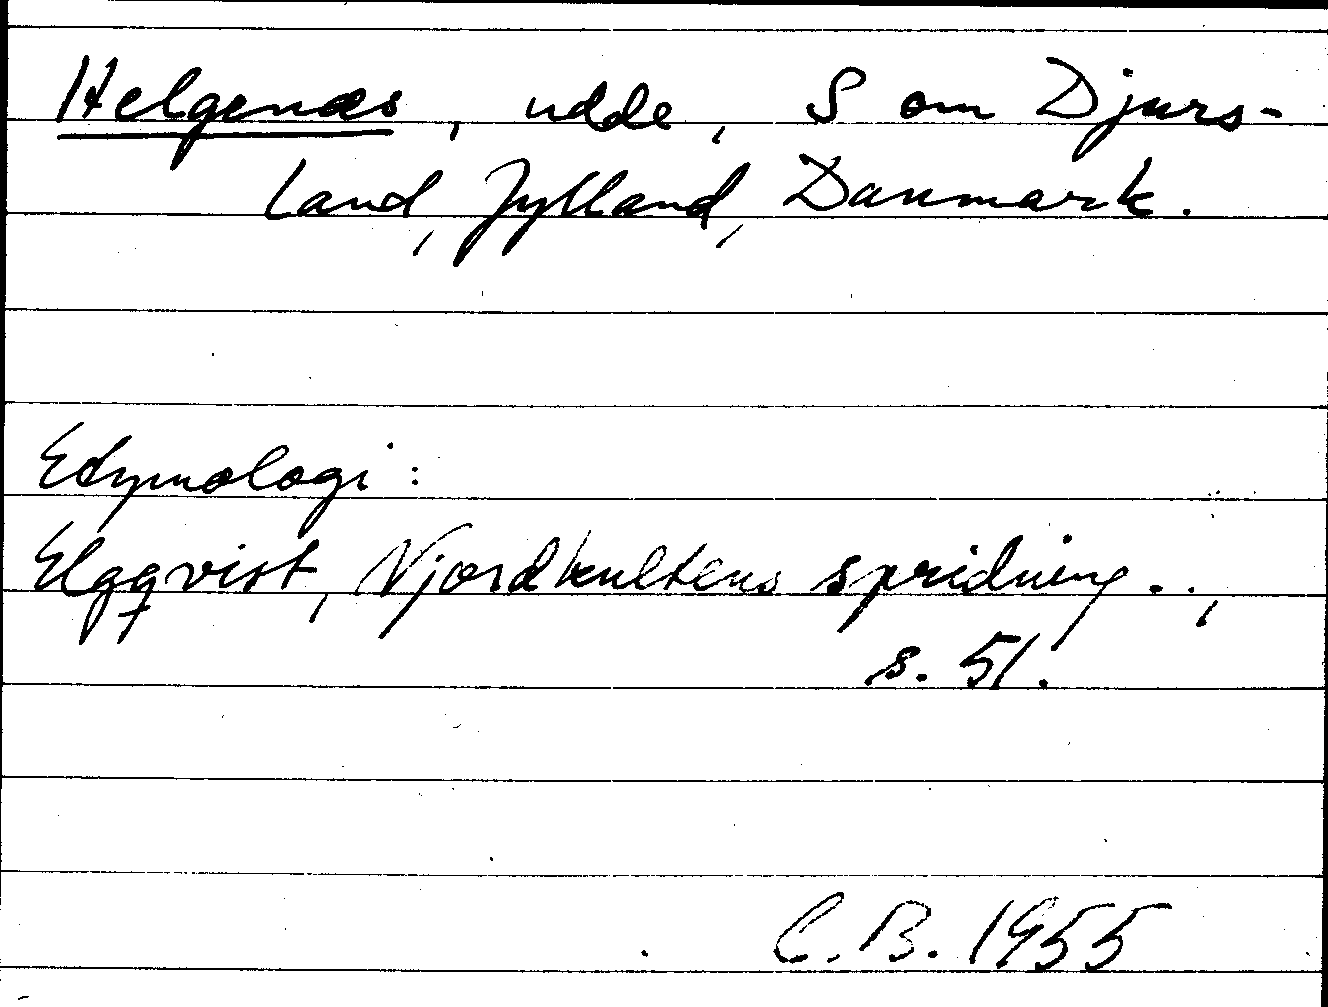 Helgenæs, udde, S om Djurs-
land, Jylland, Danmark.
Etymologi:
Elgqvist, Njordkultens spridning..,
s. 51.
C.B. 1955